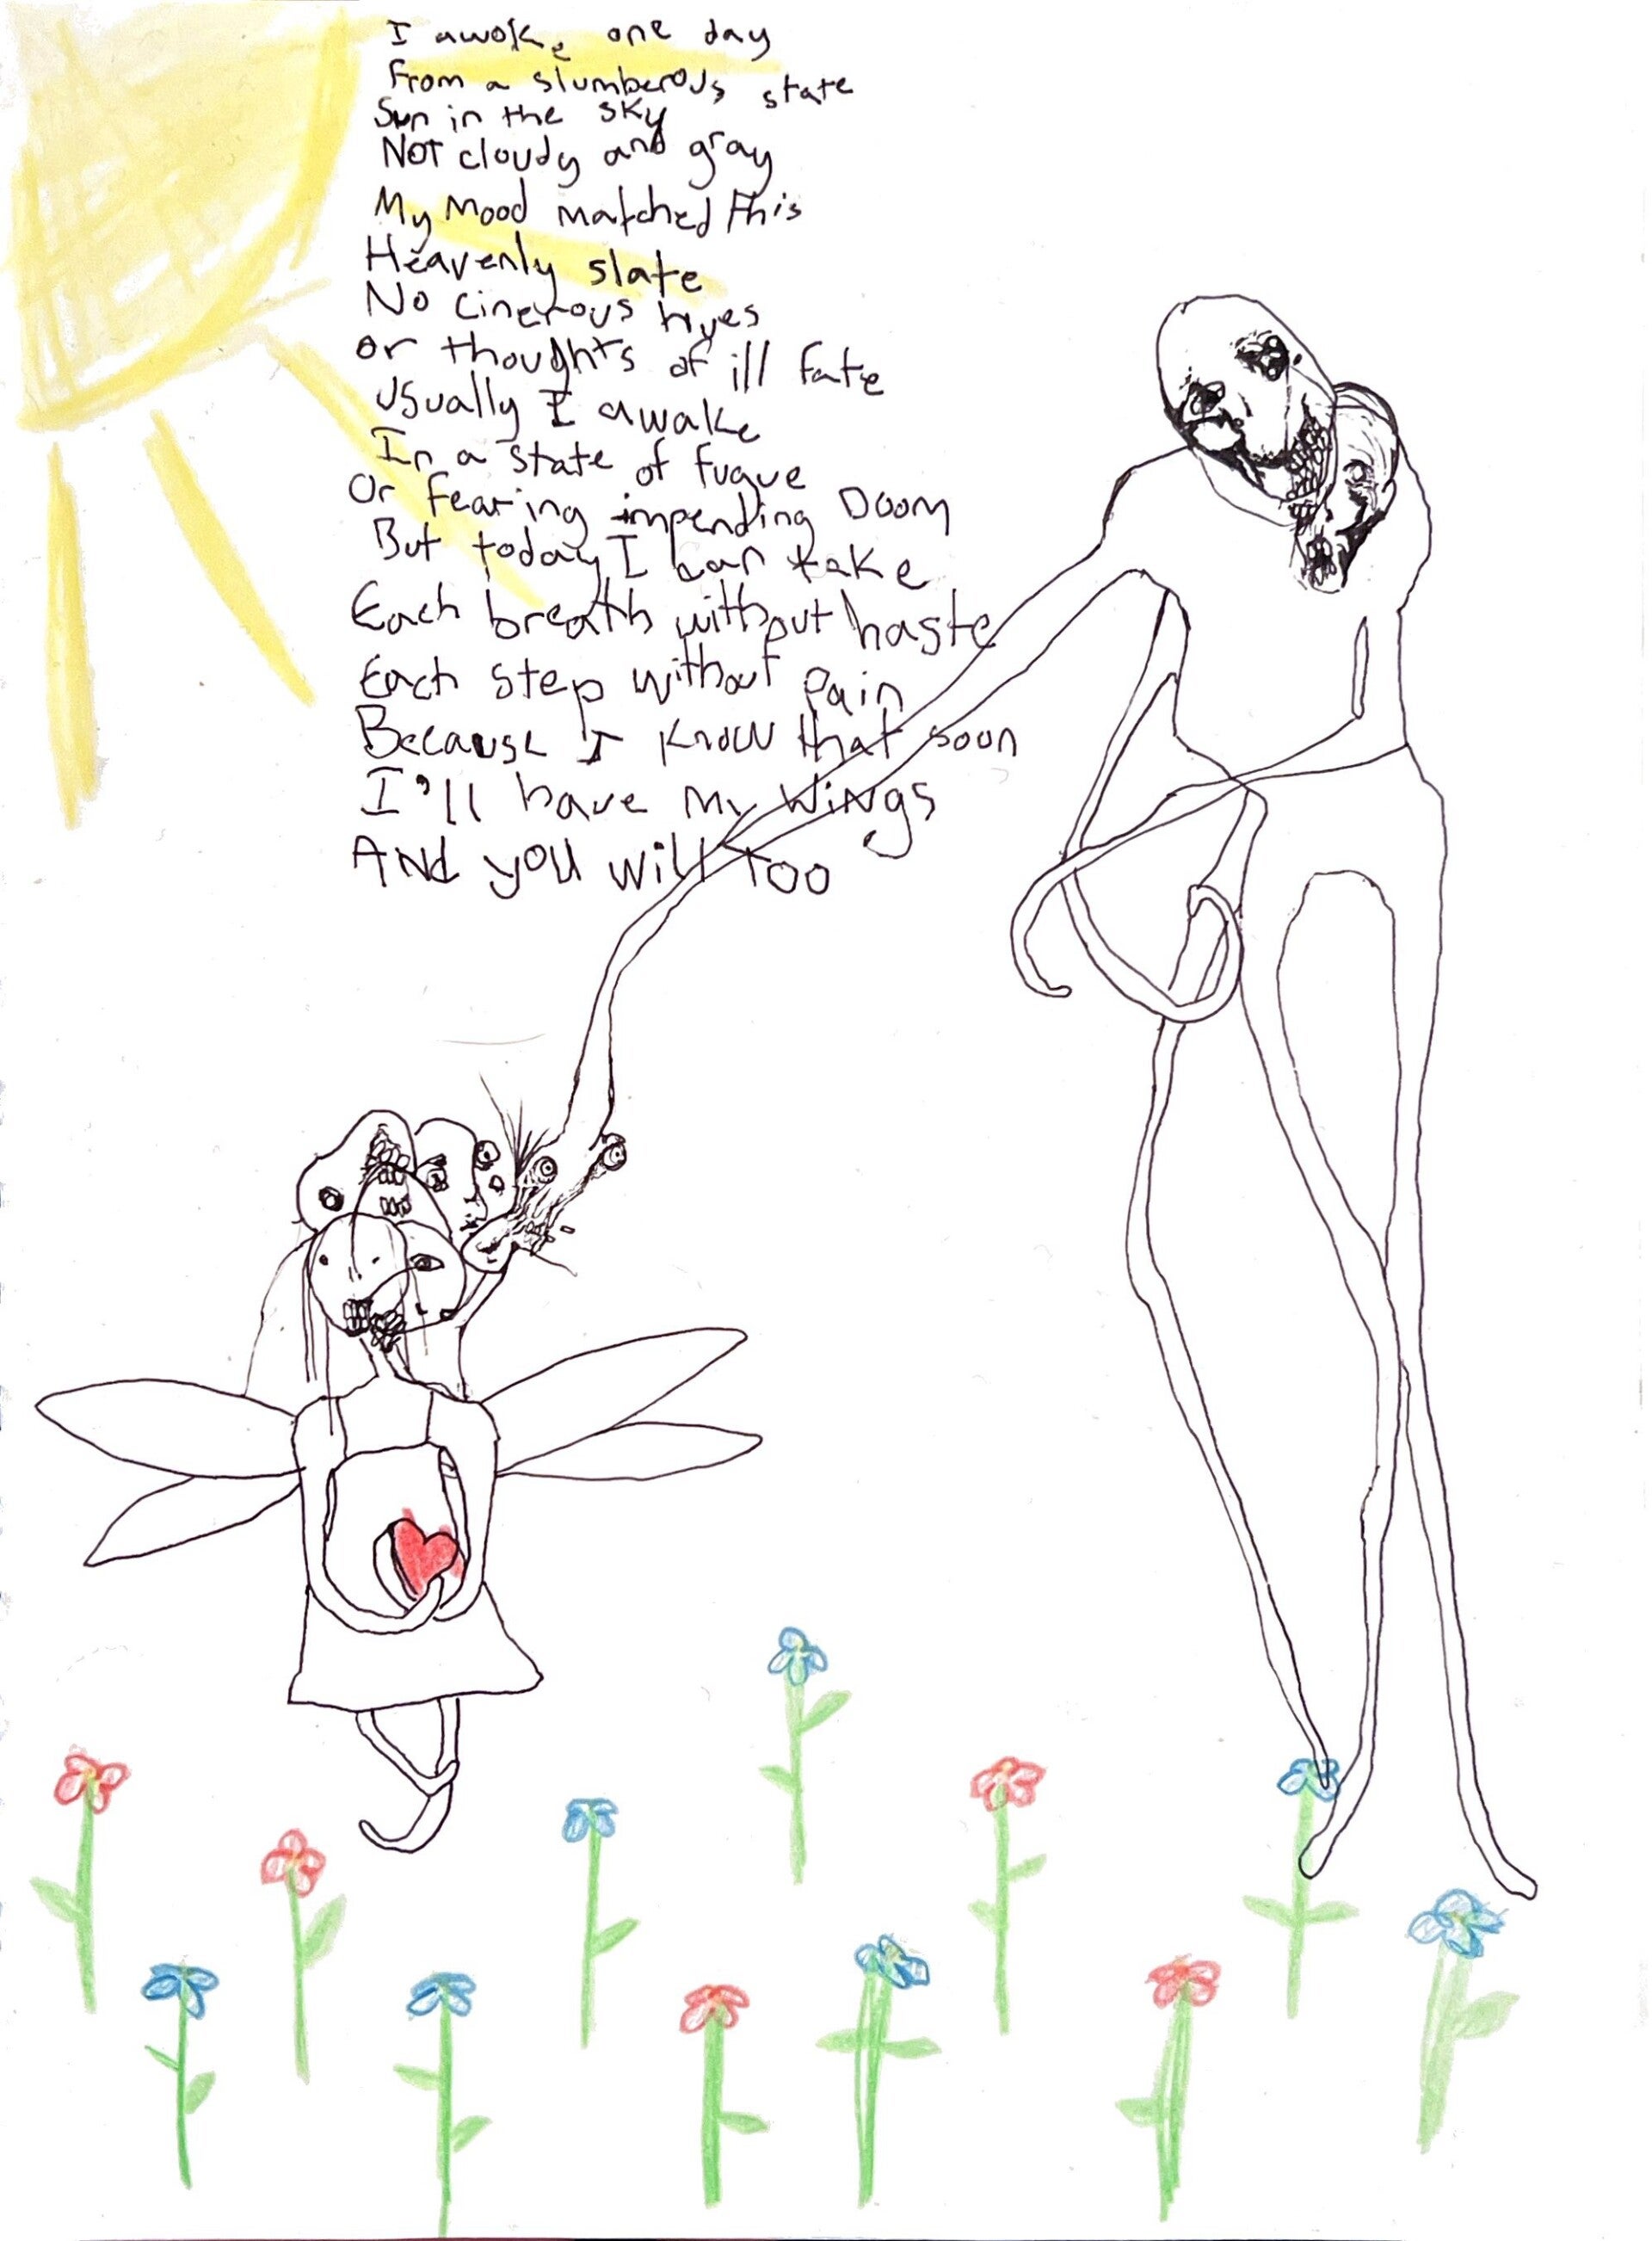 I awoke one day
From a slumberous state
Sun in the sky
Not cloudy and gray
My Mood matched this
Heavenly slate
No cinerous hyes
or thoughts of ill fate
Usually I awake
In a state of fugue
Or fearing impending Doom
But today I can take
Each breath without haste
Each step without pain
Because I know that soon
I'll have my Wings
And you will Too